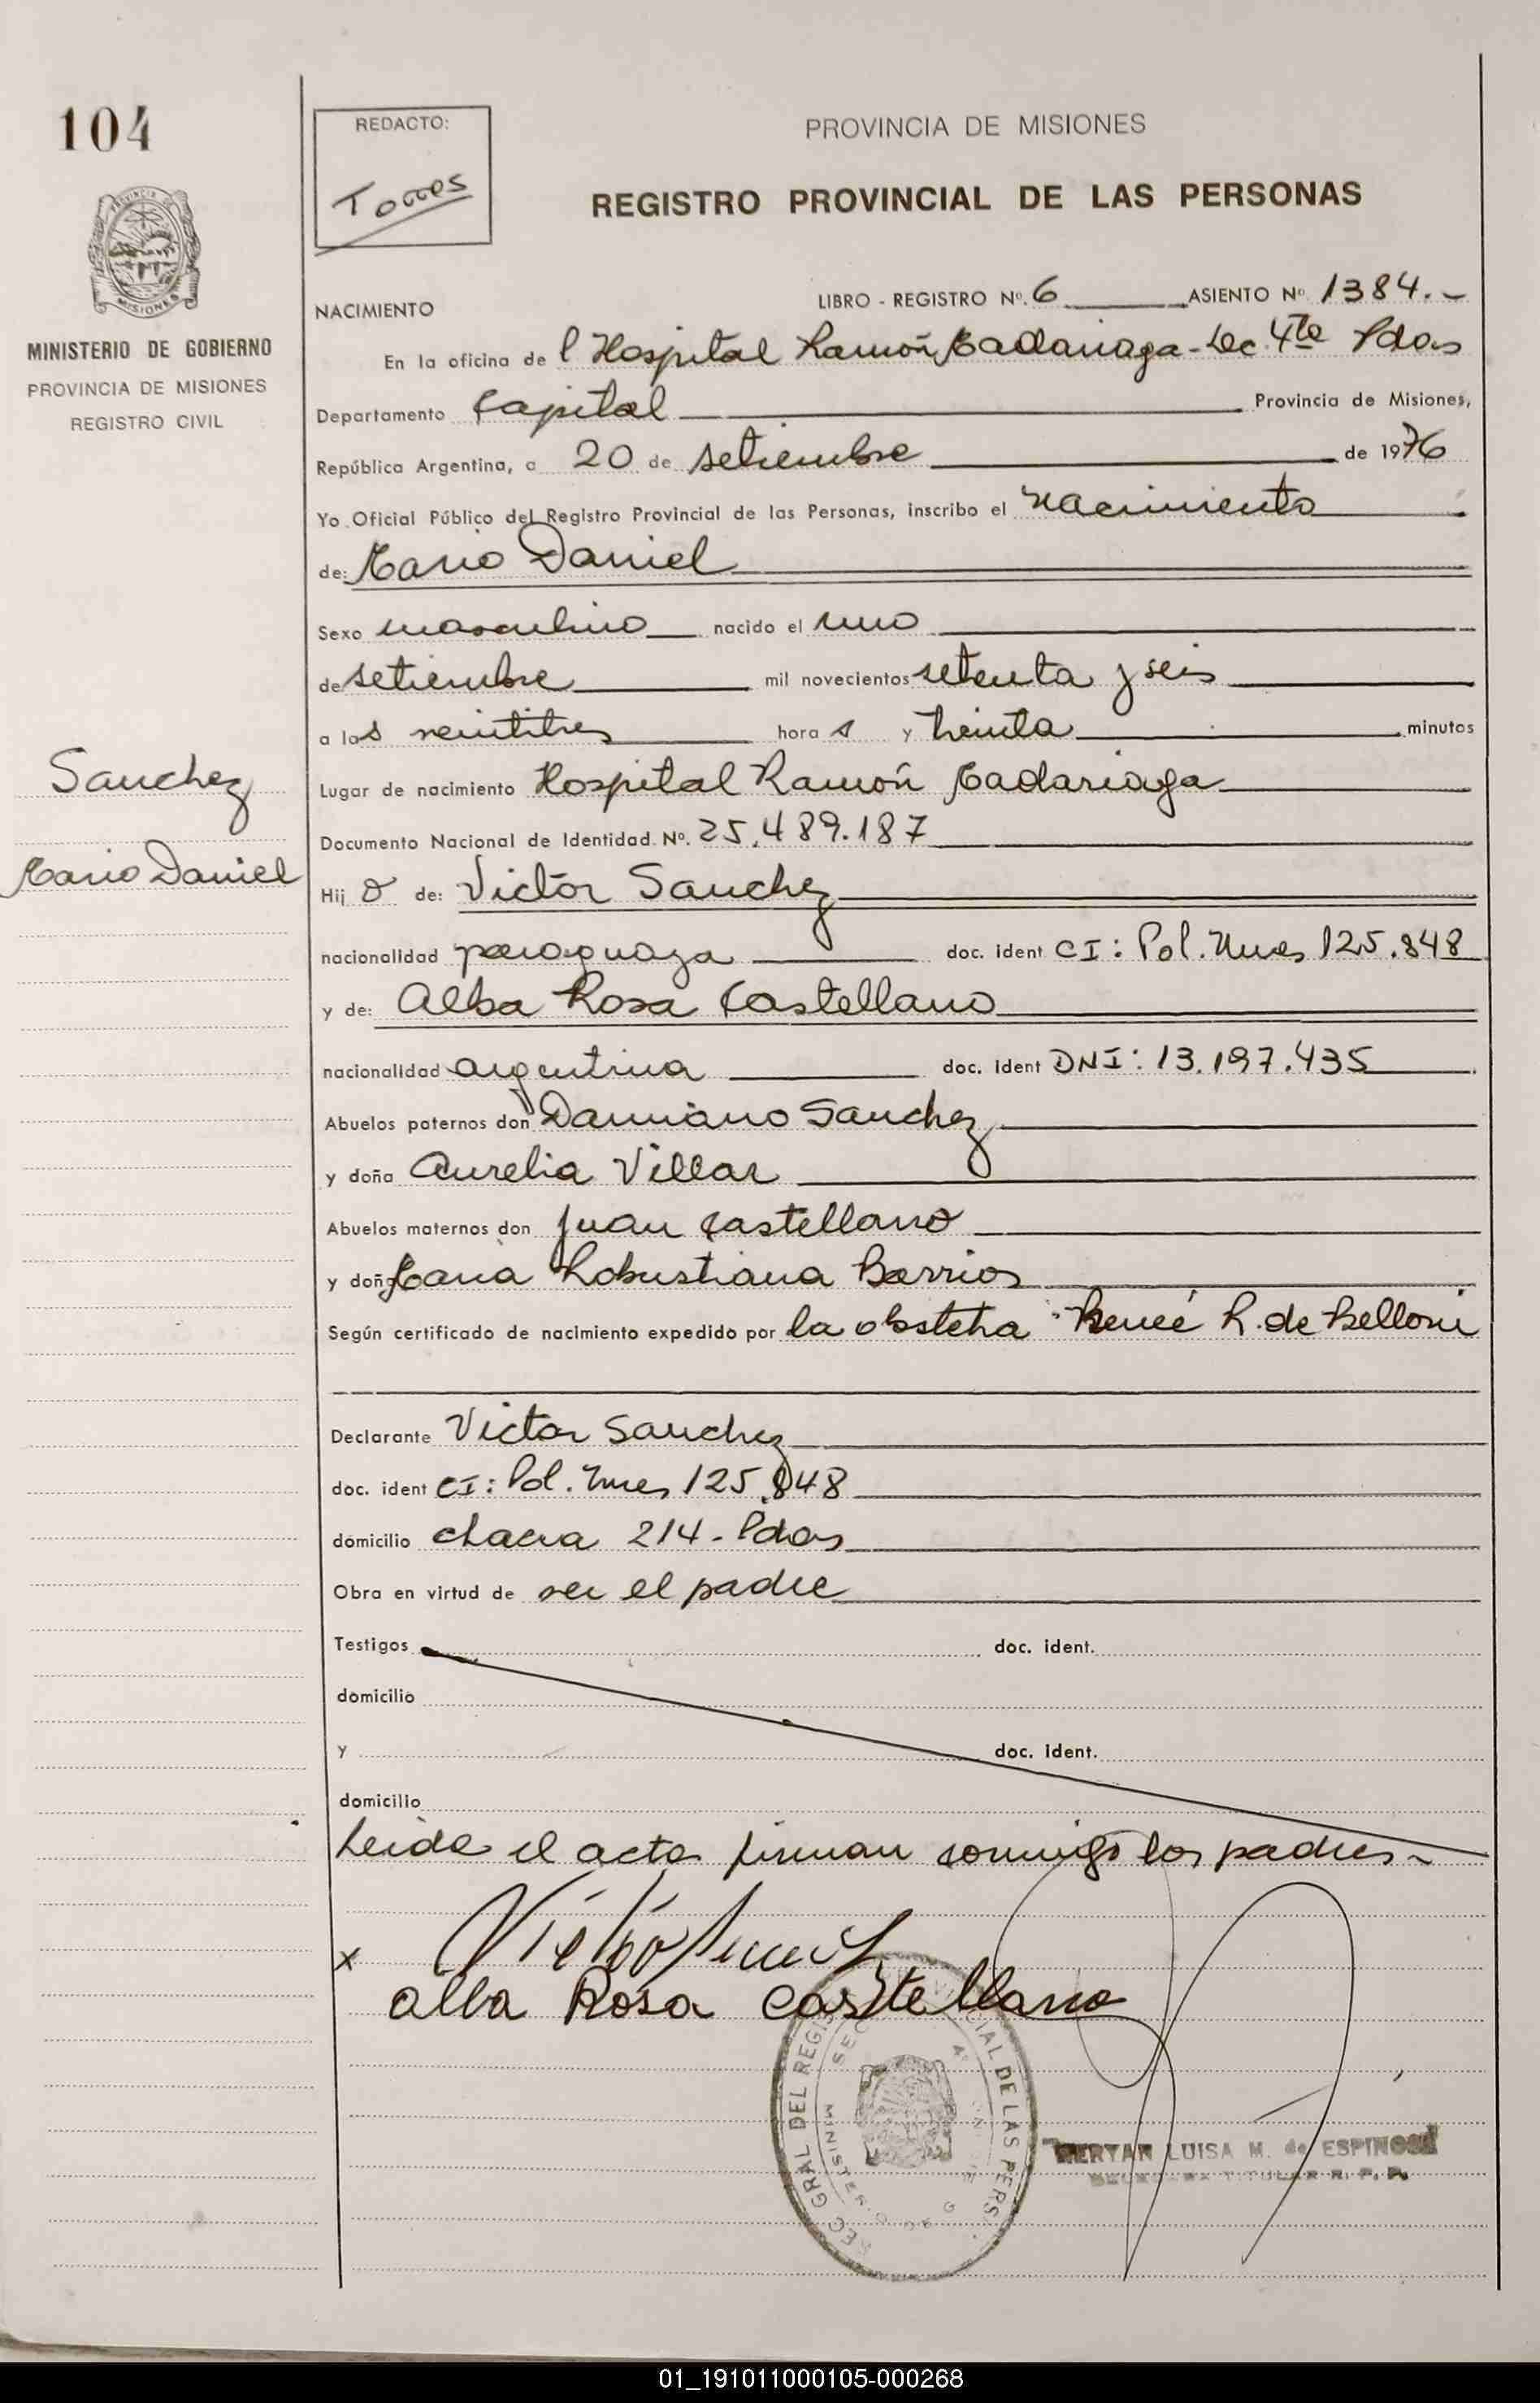 104
REDACTO:
Torres
PROVINCIA DE MISIONES
REGISTRO PROVINCIAL DE LAS PERSONAS
PROVINCIA
MISIONES
MINISTERIO DE GOBIERNO
PROVINCIA DE MISIONES
REGISTRO CIVIL
LIBRO - REGISTRO Nº. 6 ASIENTO Nº 1384.-
NACIMIENTO
En la oficina de l Hospital Ramón Madariaga - Sec. 4ta Pdas
Departamento Capital Provincia de Misiones,
República Argentina, a 20 de setiembre de 1976
Yo Oficial Público del Registro Provincial de las Personas, inscribo el nacimiento
de: Mario Daniel
Sexo masculino nacido el uno
de setiembre mil novecientos setenta y seis
a las veintitres hora s y treinta minutos
Lugar de nacimiento Hospital Ramón Madariaga
Documento Nacional de Identidad Nº. 25.489.187
Sanchez
Mario Daniel
Hij o de: Victor Sanchez
nacionalidad paraguaya doc. ident CI: Pol. Mnes 125.848
y de: Alba Rosa Castellano
nacionalidad argentina doc. ident DNI: 13.197.435
Abuelos paternos don Damiano Sanchez
y doña Aurelia Villar
Abuelos maternos don Juan Castellano
y doña Maria Robustiana Barrios
Según certificado de nacimiento expedido por la obstetra Reneé R. de Belloni
Declarante Victor Sanchez
doc. ident CI: Pol. Mnes 125.848
domicilio chacra 214 - Pdas
Obra en virtud de ser el padre
Testigos doc. ident.
domicilio
y doc. ident.
domicilio
Leida el acta firman conmigo los padres -
x
alba Rosa castellano
LUISA M. de ESPINOSA
TITULAR R. P. P.
01_191011000105-000268